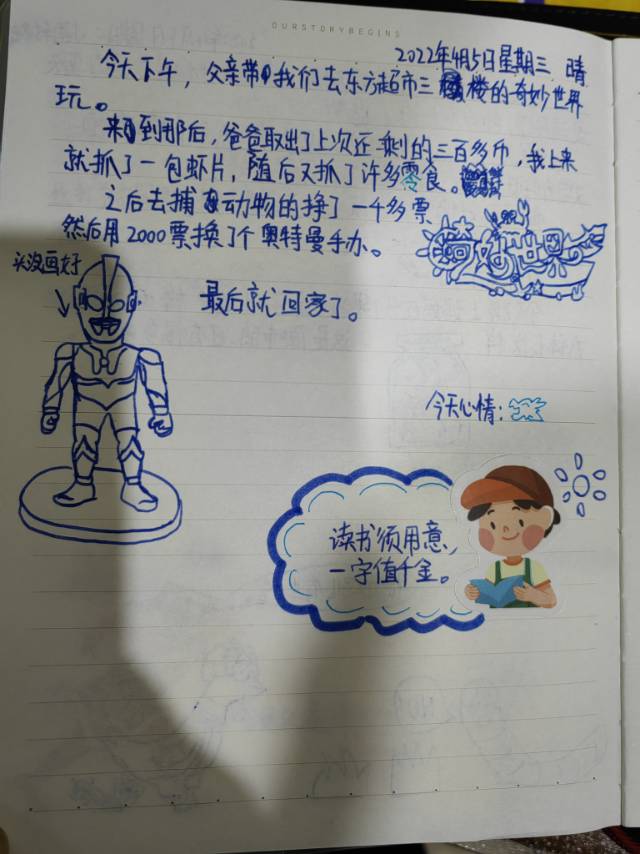 OURSTORYBEGINS
2022年4月5日星期三 晴
今天下午，父亲带我们去东方超市三楼的奇妙世界
玩。
来到那后，爸爸取出了上次还剩的三百多币，我上来
就抓了一包虾片，随后又抓了许多零食。
之后去捕动物的挣了一千多票
然后用2000票换了个奥特曼手办。
奇妙世界
头没画好
最后就回家了。
今天心情：
读书须用意，
一字值千金。